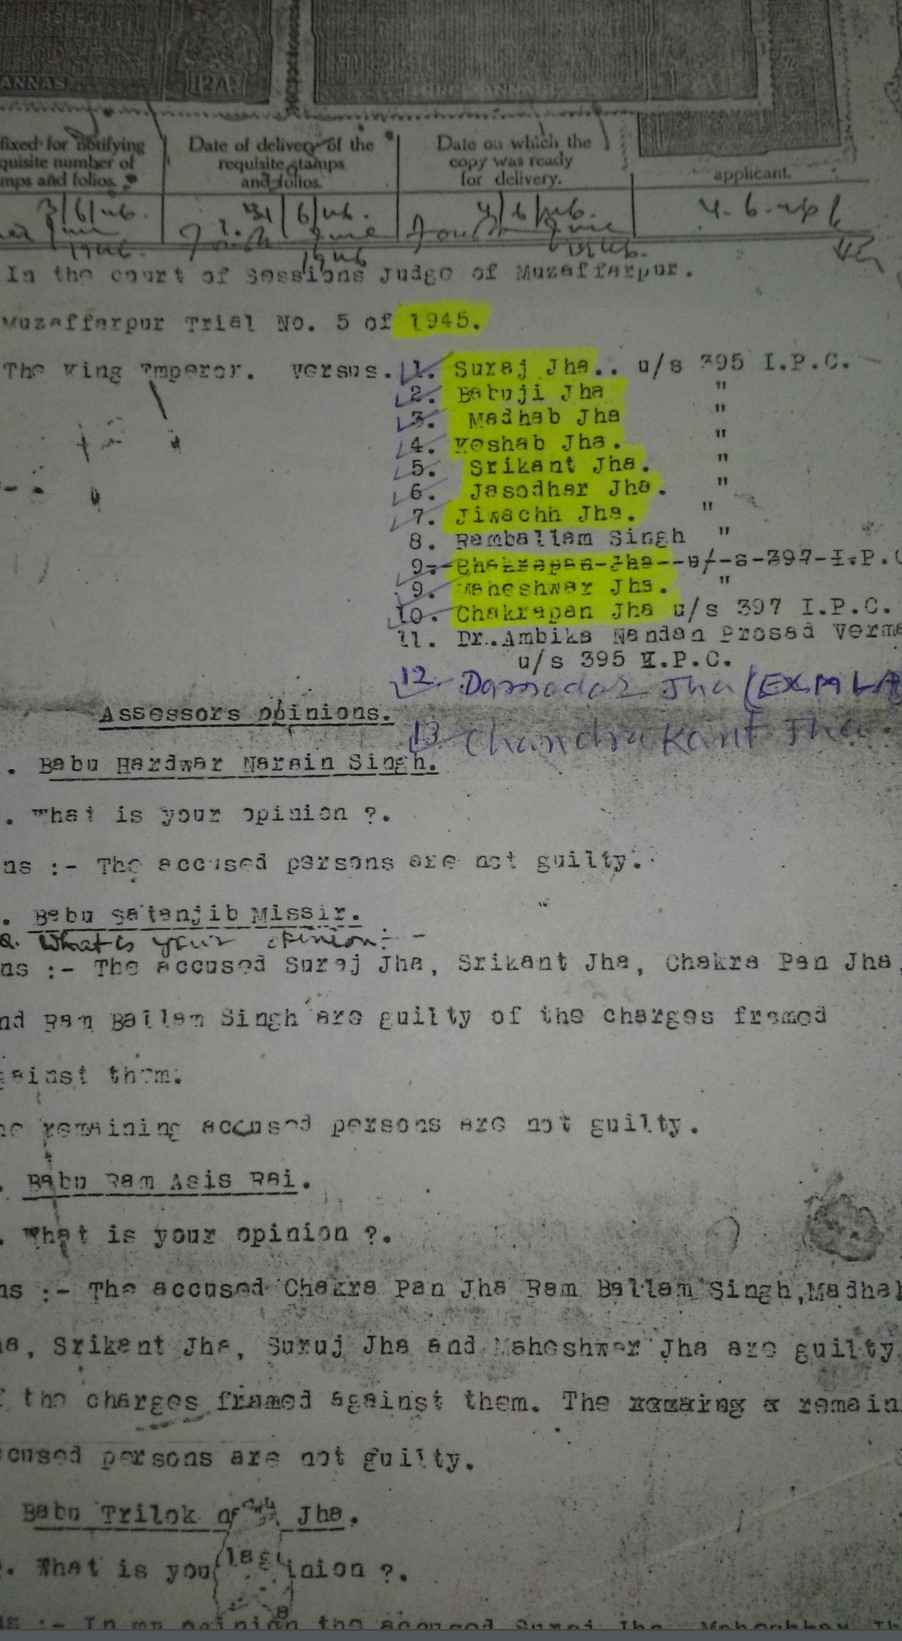 ANNAS
12A
fixed for notifying
quisite number of
mps and folios.
Date of delivery of the
requisite stamps
and folios.
Date on which the
copy was ready
for delivery.
applicant.
3/6/46.
3/6/46.
4/6/46.
4.6.46
1946.
1946
1946.
In the court of Sessions Judge of Muzaffarpur.
Muzaffarpur Trial No. 5 of 1945.
The King Emperor. Versus. 1. Suraj Jha.. u/s 395 I.P.C.
2. Babuji Jha "
3. Madhab Jha "
4. Keshab Jha. "
5. Srikant Jha. "
6. Jasodhar Jha. "
7. Jiwachh Jha. "
8. Ramballam Singh "
9. Chakrapan Jha u/s 397 I.P.C
9. Maheshwar Jha. "
10. Chakrapan Jha u/s 397 I.P.C.
11. Dr. Ambika Nandan Prosad Verma
u/s 395 I.P.C.
12. Damodar Jha (EX MLA
Assessors opinions.
13 Chandrakant Jha
. Babu Hardwar Narain Singh.
. What is your opinion ?.
ns :- The accused persons are not guilty.
. Babu Satanjib Missir.
Q. What is your opinion:-
ns :- The accused Suraj Jha, Srikant Jha, Chakra Pan Jha,
nd Ram Ballam Singh are guilty of the charges framed
gainst them.
he remaining accused persons are not guilty.
. Babu Ram Asis Rai.
. What is your opinion ?.
ns :- The accused Chakra Pan Jha Ram Ballam Singh, Madhab
ha, Srikant Jha, Suruj Jha and Maheshwar Jha are guilty
f the charges framed against them. The remain
cused persons are not guilty.
Babu Trilok Jha.
. What is you inion ?.
ns :- In my opinion the accused Suraj Jha, Maheshwar Jh